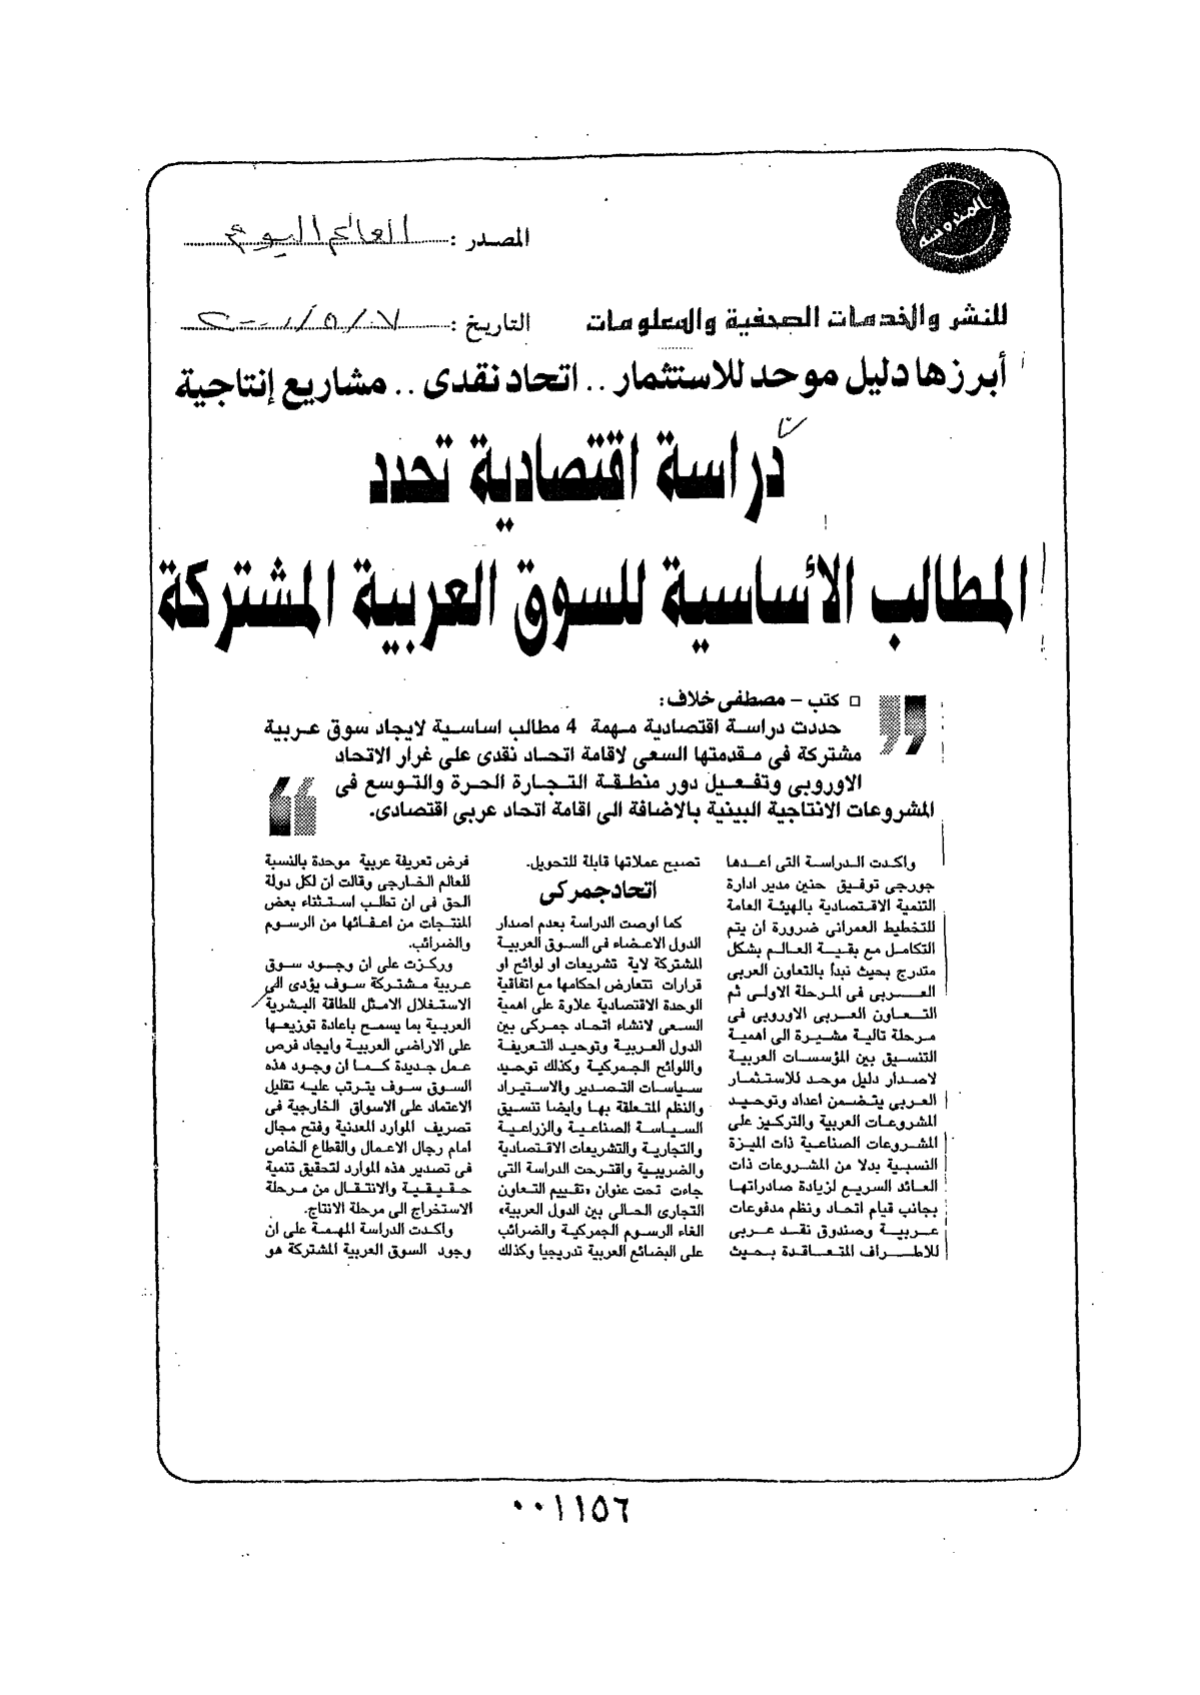 المدروسة
المصدر : العالم اليوم
للنشر والخدمات الصحفية والمعلومات
التاريخ : ٧ / ٥ / ٢٠٠١
أبرزها دليل موحد للاستثمار .. اتحاد نقدى .. مشاريع إنتاجية
دراسة اقتصادية تحدد
المطالب الأساسية للسوق العربية المشتركة
□ كتب – مصطفى خلاف:
حددت دراسة اقتصادية مهمة 4 مطالب اساسية لايجاد سوق عربية
مشتركة فى مقدمتها السعى لاقامة اتحاد نقدى على غرار الاتحاد
الاوروبى وتفعيل دور منطقة التجارة الحرة والتوسع فى
المشروعات الانتاجية البينية بالاضافة الى اقامة اتحاد عربى اقتصادى.
واكدت الدراسة التى اعدها
جورجى توفيق حنين مدير ادارة
التنمية الاقتصادية بالهيئة العامة
للتخطيط العمرانى ضرورة ان يتم
التكامل مع بقية العالم بشكل
متدرج بحيث نبدأ بالتعاون العربى
العربى فى المرحلة الاولى ثم
التعاون العربى الاوروبى فى
مرحلة تالية مشيرة الى اهمية
التنسيق بين المؤسسات العربية
لاصدار دليل موحد للاستثمار
العربى يتضمن اعداد وتوحيد
المشروعات العربية والتركيز على
المشروعات الصناعية ذات الميزة
النسبية بدلا من المشروعات ذات
العائد السريع لزيادة صادراتها
بجانب قيام اتحاد ونظم مدفوعات
عربية وصندوق نقد عربى
للاطراف المتعاقدة بحيث
تصبح عملاتها قابلة للتحويل.
اتحاد جمركى
كما اوصت الدراسة بعدم اصدار
الدول الاعضاء فى السوق العربية
المشتركة لاية تشريعات او لوائح او
قرارات تتعارض احكامها مع اتفاقية
الوحدة الاقتصادية علاوة على اهمية
السعى لانشاء اتحاد جمركى بين
الدول العربية وتوحيد التعريفة
واللوائح الجمركية وكذلك توحيد
سياسات التصدير والاستيراد
والنظم المتعلقة بها وايضا تنسيق
السياسة الصناعية والزراعية
والتجارية والتشريعات الاقتصادية
والضريبية واقترحت الدراسة التى
جاءت تحت عنوان «تقييم التعاون
التجارى الحالى بين الدول العربية»
الغاء الرسوم الجمركية والضرائب
على البضائع العربية تدريجيا وكذلك
فرض تعريفة عربية موحدة بالنسبة
للعالم الخارجى وقالت ان لكل دولة
الحق فى ان تطلب استثناء بعض
المنتجات من اعفائها من الرسوم
والضرائب.
وركزت على ان وجود سوق
عربية مشتركة سوف يؤدى الى
الاستغلال الامثل للطاقة البشرية
العربية بما يسمح باعادة توزيعها
على الاراضى العربية وايجاد فرص
عمل جديدة كما ان وجود هذه
السوق سوف يترتب عليه تقليل
الاعتماد على الاسواق الخارجية فى
تصريف الموارد المعدنية وفتح مجال
امام رجال الاعمال والقطاع الخاص
فى تصدير هذه الموارد لتحقيق تنمية
حقيقية والانتقال من مرحلة
الاستخراج الى مرحلة الانتاج.
واكدت الدراسة المهمة على ان
وجود السوق العربية المشتركة هو
٠٠١١٥٦